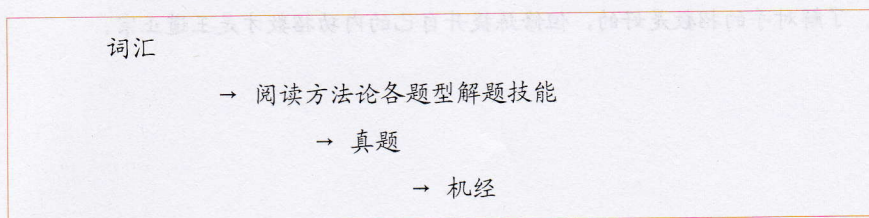 词汇
→ 阅读方法论各题型解题技能
→ 真题
→ 机经